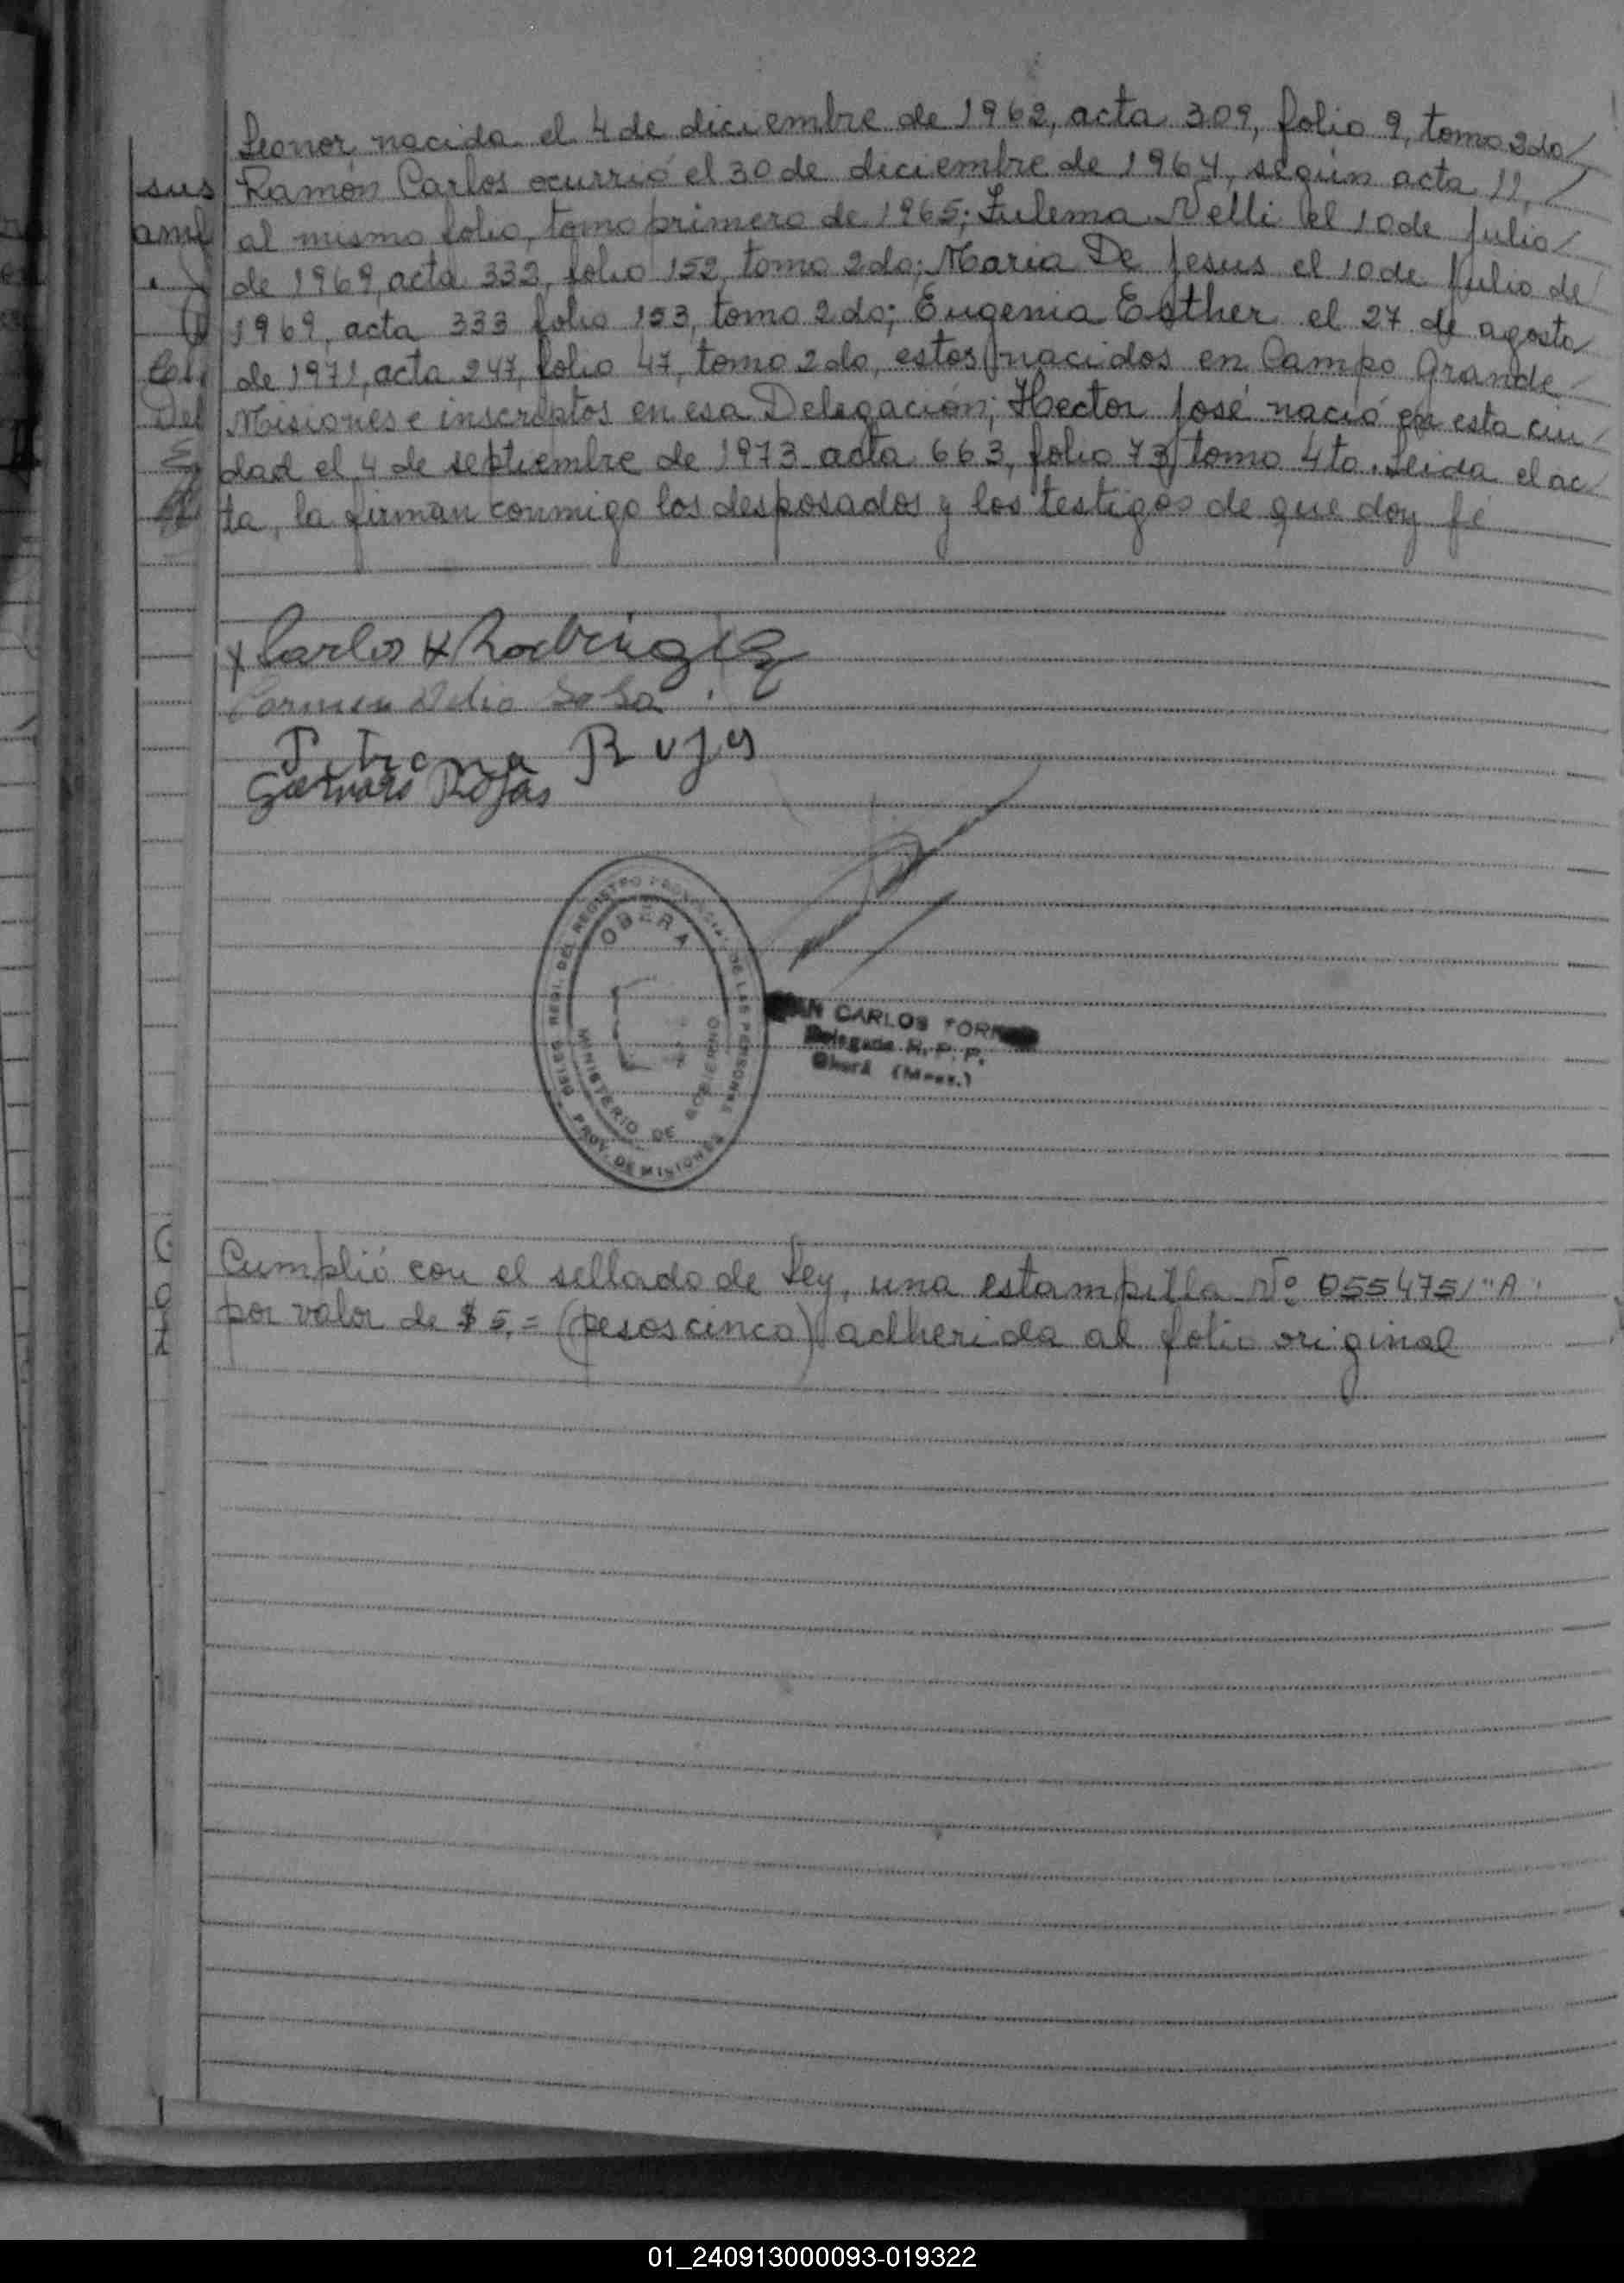 Leonor nacida el 4 de diciembre de 1962, acta 309, folio 9, tomo 2do/
Ramón Carlos ocurrió el 30 de diciembre de 1964, según acta 11, /
al mismo folio, tomo primero de 1965; Zulema Nelli el 10 de Julio/
de 1969, acta 332, folio 152, tomo 2do; Maria De Jesus el 10 de Julio de/
1969, acta 333 folio 153, tomo 2do; Eugenia Esther el 27 de agosto/
de 1971, acta 247, folio 47, tomo 2do, estos nacidos en Campo Grande/
Misiones e inscriptos en esa Delegación; Hector José nació en esta ciu/
dad el 4 de septiembre de 1973 acta 663, folio 73, tomo 4to. Leida el ac/
ta, la firman conmigo los desposados y los testigos de que doy fé
x Carlos H Rodriguez
Carmen Delia Sosa
Petrona Rojas
Rojas
DELEG. REGI. DEL REGISTRO PROVINCIAL DE LAS PERSONAS
OBERA
MINISTERIO DE GOBIERNO
PROV. DE MISIONES
CARLOS
Delegado R. P. P.
Oberá (Mnes.)
Cumplió con el sellado de Ley, una estampilla Nº 0554751 "A"
por valor de $ 5,= (pesos cinco) adherida al folio original
sus
Del
01_240913000093-019322